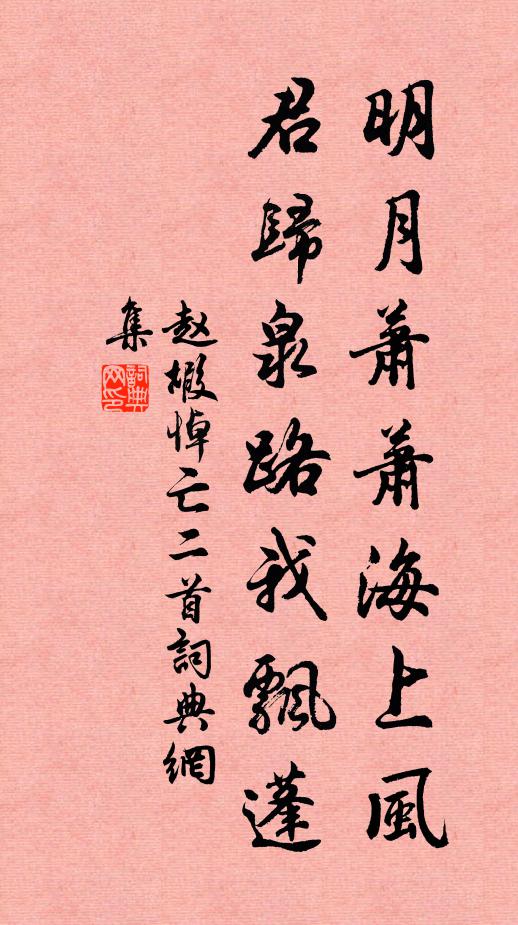 明月蕭蕭海上風
君歸泉路我飄蓬
赵嘏悼亡二首詞典網
集
詞典
网印